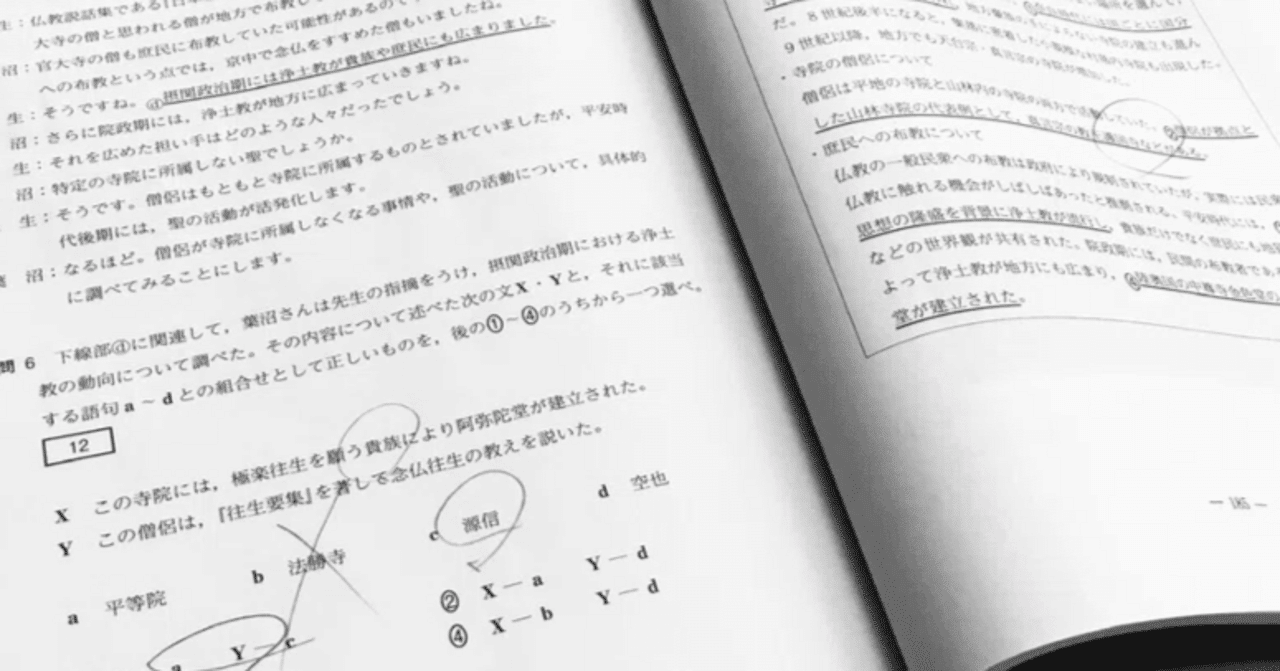 生：仏教説話集である『日本
大寺の僧と思われる僧が地方で布教して
沼：官大寺の僧も庶民に布教していた可能性があるので
への布教という点では，京中で念仏をすすめた僧もいましたね。
生：そうですね。ⓓ摂関政治期には浄土教が貴族や庶民にも広まりました。
沼：さらに院政期には，浄土教が地方に広まっていきますね。
生：それを広めた担い手はどのような人々だったでしょう。
沼：特定の寺院に所属しない聖でしょうか。
生：そうです。僧侶はもともと寺院に所属するものとされていましたが，平安時
代後期には，聖の活動が活発化します。
葉 沼：なるほど。僧侶が寺院に所属しなくなる事情や，聖の活動について，具体的
に調べてみることにします。
問 6 下線部ⓓに関連して，葉沼さんは先生の指摘をうけ，摂関政治期における浄土
教の動向について調べた。その内容について述べた次の文X・Yと，それに該当
する語句a～dとの組合せとして正しいものを，後の①～④のうちから一つ選べ。
12
X この寺院には，極楽往生を願う貴族により阿弥陀堂が建立された。
Y この僧侶は，『往生要集』を著して念仏往生の教えを説いた。
a 平等院 b 法勝寺 c 源信 d 空也
a Y ― c ② X ― a Y ― d
④ X ― b Y ― d
だ。8世紀後半になると，
9世紀以降，地方でも天台宗・真言宗の寺院が
・寺院の僧侶について
僧侶は平地の寺院と山林内の寺院の両方で活動していた。
した山林寺院の代表例として，
・庶民への布教について
仏教の一般民衆への布教は政府により規制されていたが，実際には民衆
仏教に触れる機会がしばしばあったと推測される。平安時代には，
思想の隆盛を背景に浄土教が流行し，貴族だけでなく庶民にも
などの世界観が共有された。院政期には，民間の布教者であ
よって浄土教が地方にも広まり，陸奥国の中尊寺金色堂の
堂が建立された。